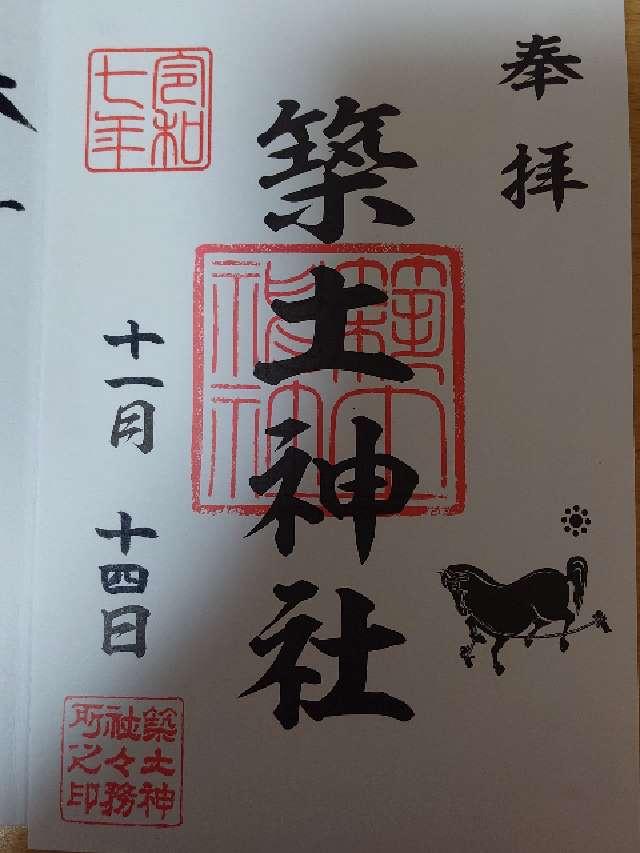 奉拝
築土神社
築土神社
令和
七年
十一月 十四日
築土神
社々務
所之印